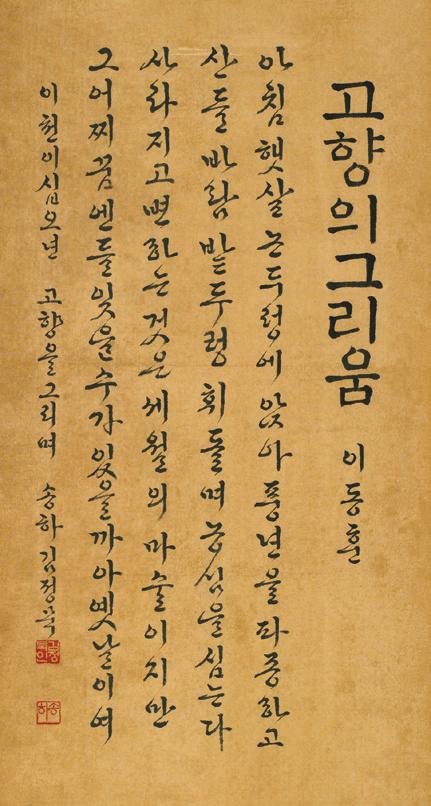 고향의그리움
이동훈
아침햇살논두렁에앉아풍년을타종하고
산들바람밭두렁휘돌며농심을심는다
사라지고변하는것은세월의마술이지만
그어찌꿈엔들잊을수가있을까아옛날이여
이천이십오년 고향을그리며 송하김정묵